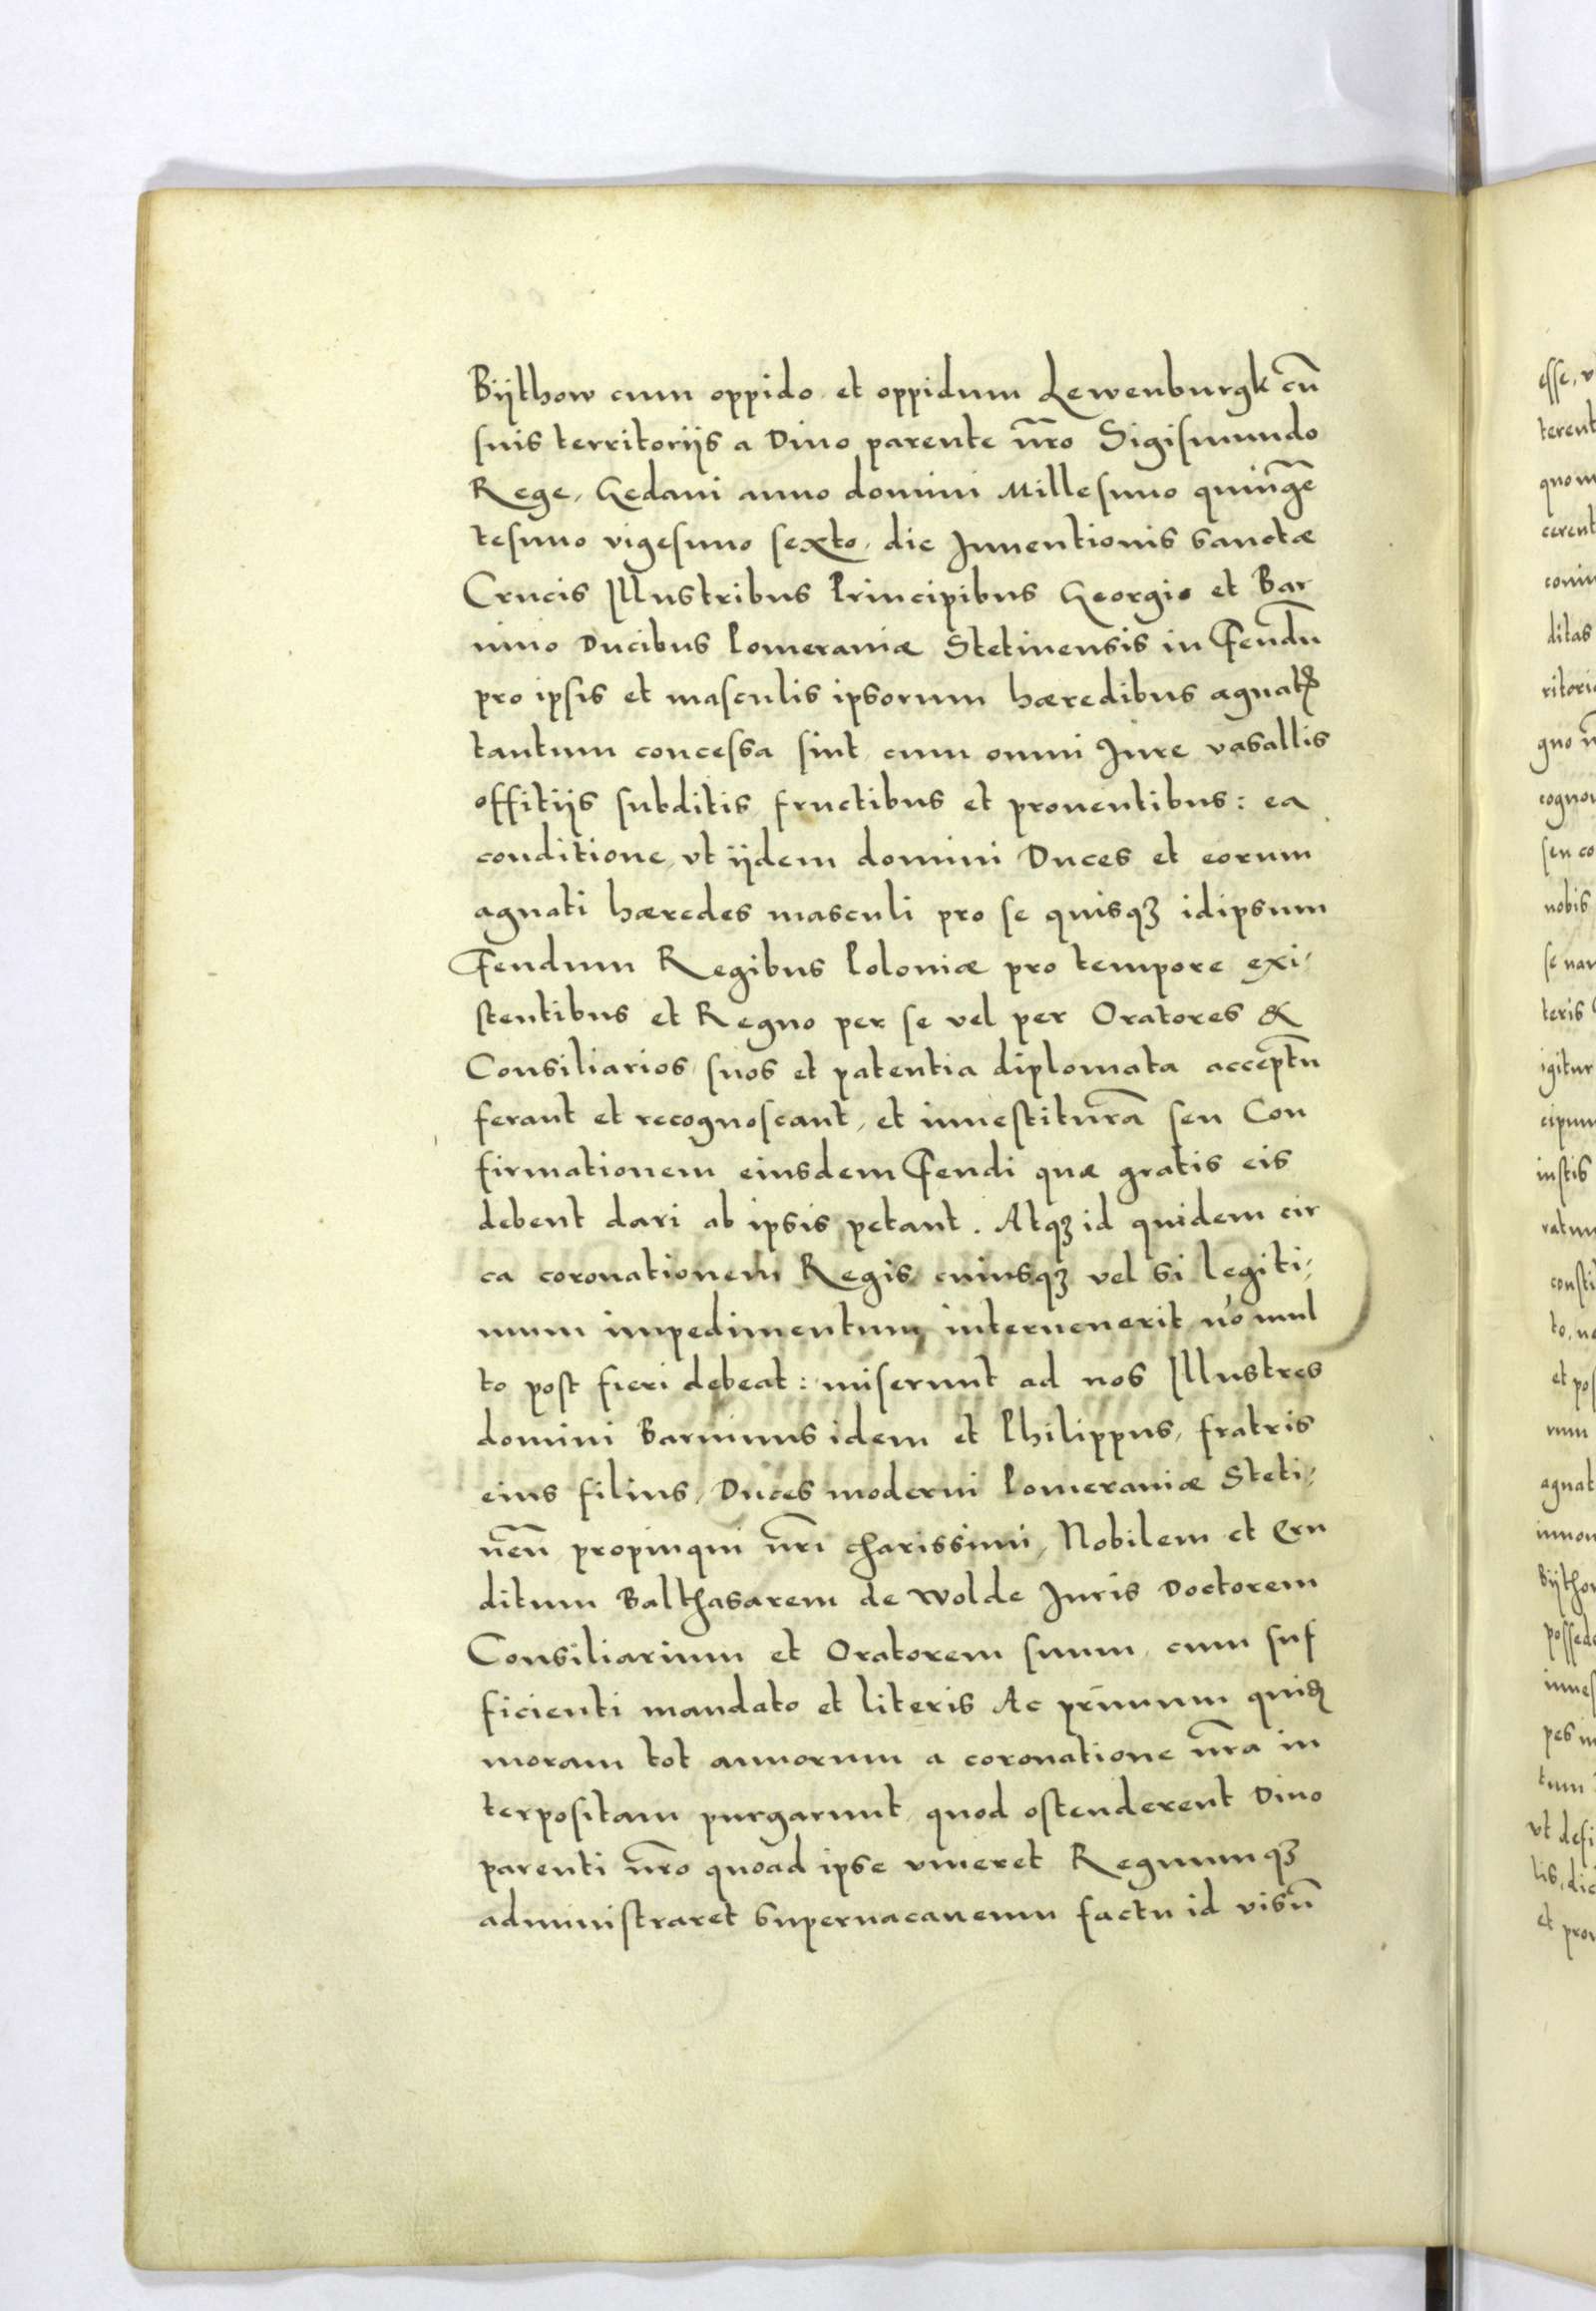 Bijthow cum oppido et oppidum Lewenburgk cū
suis territorijs a Diuo parente nr̄o Sigismundo
Rege, Gedani anno domini Millesimo quingē
tesimo vigesimo sexto, die Inuentionis sanctæ
Crucis Illustribus Principibus Georgio et Bar
nimo Ducibus Pomeraniæ Stetinensis in Feudū
pro ipsis et masculis ipsorum hæredibus agnatꝭ
tantum concessa sint, cum omni Iure vasallis
offitijs subditis fructibus et prouentibus: ea
conditione, vt ijdem domini Duces et eorum
agnati hæredes masculi pro se quisqȝ idipsum
Feudum Regibus Poloniæ pro tempore exi-
stentibus et Regno per se vel per Oratores &
Consiliarios suos et patentia diplomata acceptū
ferant et recognoscant, et inuestiturā seu Con
firmationem eiusdem Feudi quæ gratis eis
debent dari ab ipsis petant. Atqȝ id quidem cir
ca coronationem Regis cuiusqȝ vel si legiti-
mum impedimentum interuenerit nō mul
to post fieri debeat: miserunt ad nos Illustres
domini Barnimus idem et Philippus, fratris
eius filius, Duces moderni Pomeraniæ Steti-
nēn̄ propinqui nr̄i charissimi, Nobilem et Eru
ditum Balthasarem de Wolde Iuris Doctorem
Consiliarium et Oratorem suum, cum suf
ficienti mandato et literis Ac primum quiḍ
moram tot annorum a coronatione nr̄a in
terpositam purgarunt, quod ostenderent Diuo
parenti nr̄o quoad ipse viueret Regnumqȝ
administraret superuacaneum factu id visū
esse, v
terent
cerent
ditas
cogno
seu co
nobis
teris
igitur
et pos
agnat
Bijtho
pes in
vt defi
lis, dic